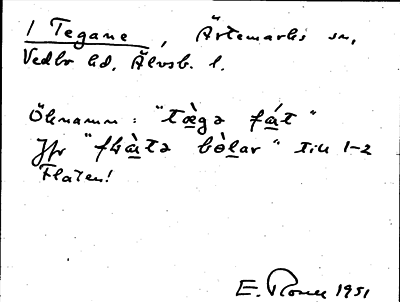 1 Tegane, Ärtemarks sn,
Vedbo hd, Älvsb. l.
Öknamn: "tæ̀gə fát"
Jfr "flàtə bòlar" till 1-2
Flaten!
E. 1951